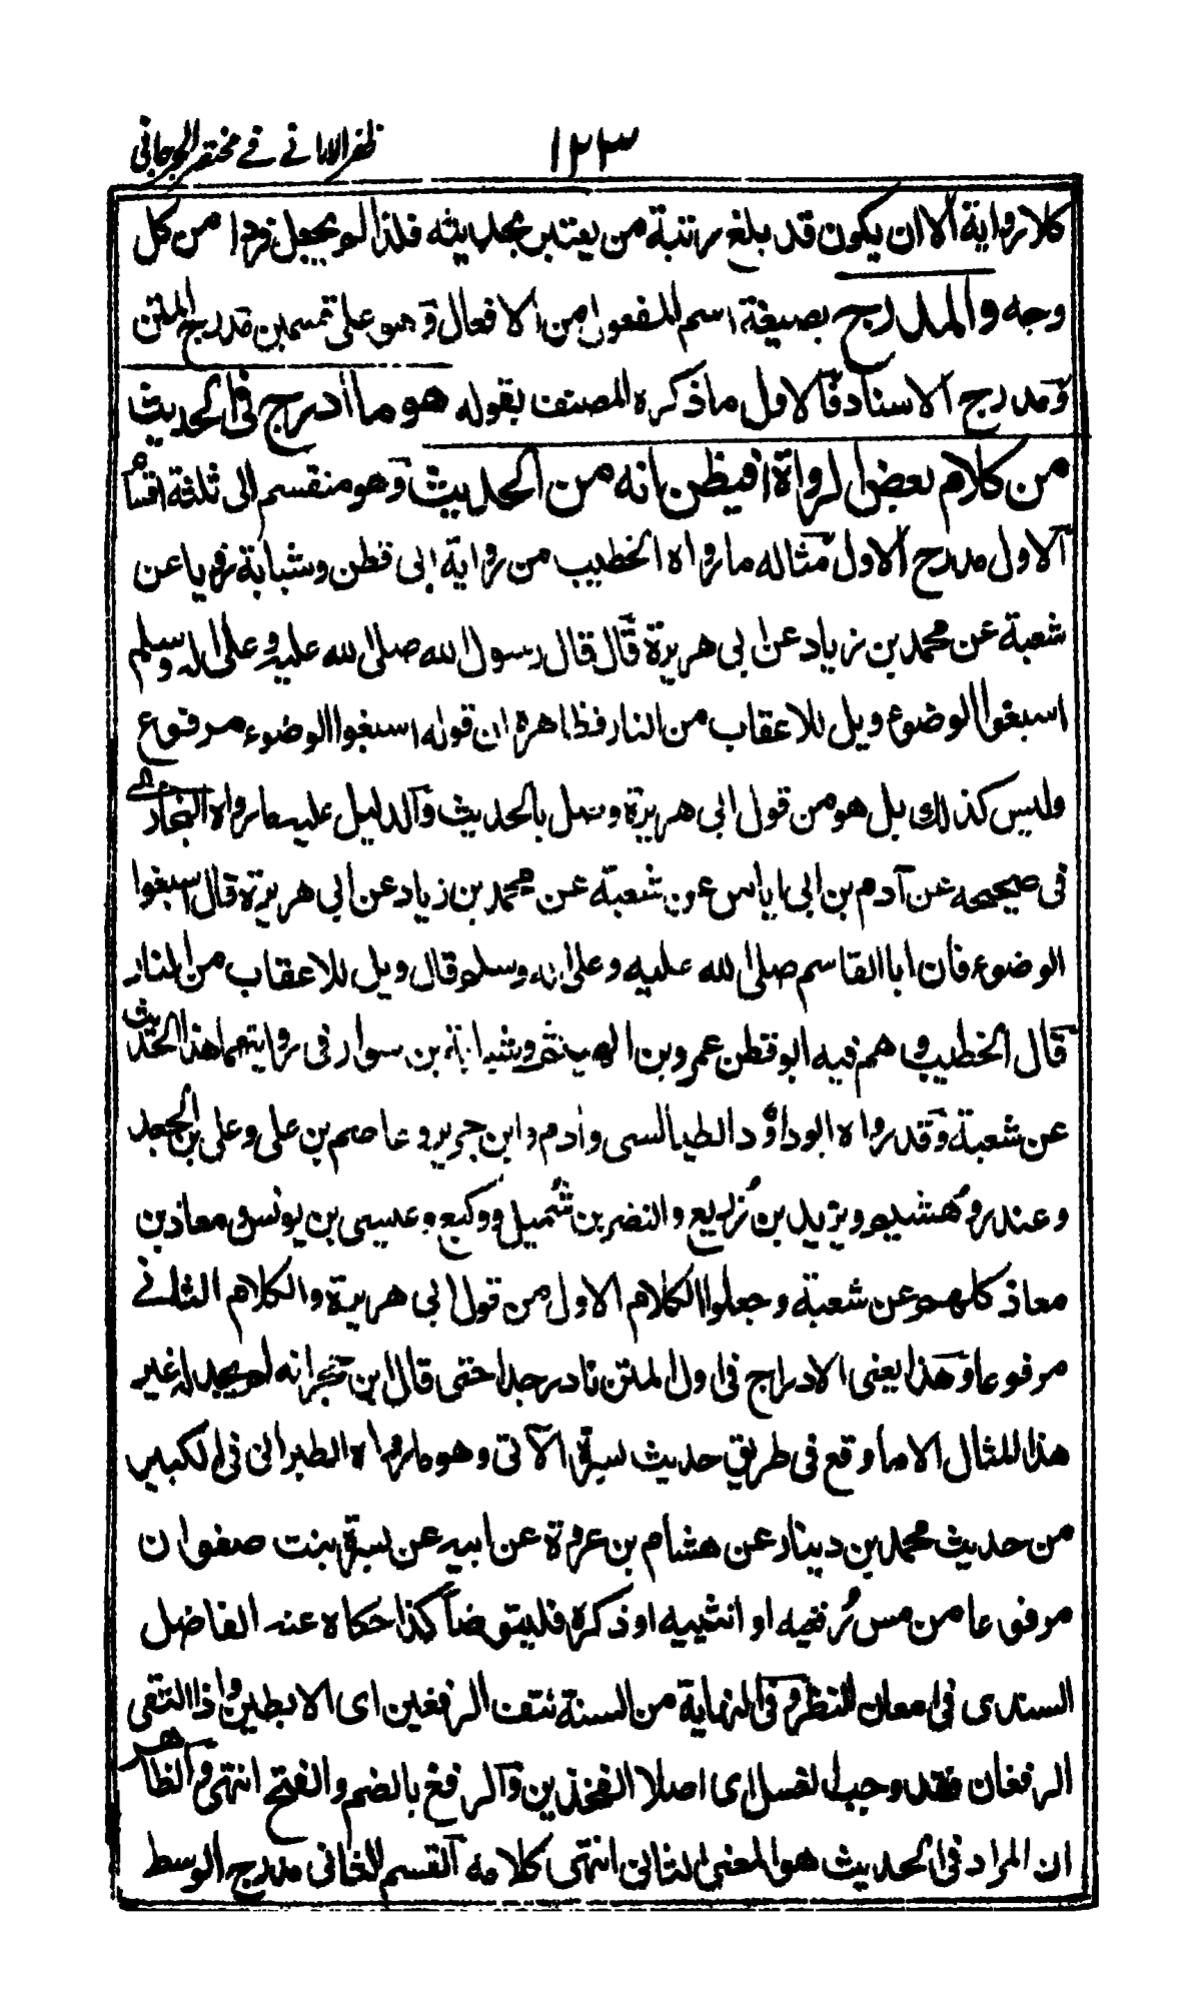 ١٢٣ ظفر الاماني في مختصر الجرجاني
كلا رواية الا ان يكون قد بلغ مرتبة من يعتبر بحديثه فلذا لم يجعل فردا من كل
وجه والمدرج بصيغة اسم المفعول من الافعال وهو على قسمين مدرج المتن
ومدرج الاسناد فالاول ما ذكره المصنف بقوله هو ما أدرج في الحديث
من كلام بعض الرواة فيظن انه من الحديث وهو منقسم الى ثلثة اقسام
الاول مدرج الاول مثاله ما رواه الخطيب من رواية ابى قطن وشبابة رويا عن
شعبة عن محمد بن زياد عن ابى هريرة قال قال رسول الله صلى الله عليه وعلى اله وسلم
اسبغوا الوضوء ويل للاعقاب من النار فظاهره ان قوله اسبغوا الوضوء مرفوع
وليس كذلك بل هو من قول ابى هريرة وصل بالحديث والدليل عليه ما رواه البخاري
فى صحيحه عن آدم بن ابى اياس عن شعبة عن محمد بن زياد عن ابى هريرة قال اسبغوا
الوضوء فان ابا القاسم صلى الله عليه وعلى اله وسلم قال ويل للاعقاب من النار
قال الخطيب وهم فيه ابو قطن عمرو بن الهيثم وشبابة بن سوار فى روايتهما هذا الحديث
عن شعبة وقد رواه ابو داؤد الطيالسى وادم وابن جرير وعاصم بن على وعلى بن الجعد
وغندر وهشيم ويزيد بن زريع والنضر بن شميل ووكيع وعيسى بن يونس ومعاذ بن
معاذ كلهم عن شعبة وجعلوا الكلام الاول من قول ابى هريرة والكلام الثاني
مرفوعا وهذا يعنى الادراج فى اول المتن نادر جدا حتى قال ابن حجر انه لم يجد له غير
هذا المثال الا ما وقع فى طريق حديث بسرة الآتى وهو ما رواه الطبرانى فى الكبير
من حديث محمد بن دينار عن هشام بن عروة عن ابيه عن بسرة بنت صفوان
مرفوعا من مس رفغيه او انثييه او ذكره فليتوضأ كذا حكاه عنه الفاضل
السندى فى امعان النظر وفى النهاية من السنة نتف الرفغين اى الابطين واذا التقى
الرفغان فقد وجب الغسل اى اصلا الفخذين والرفغ بالضم والفتح انتهى والظاهر
ان المراد فى الحديث هو المعنى الثانى انتهى كلامه القسم الثانى مدرج الوسط